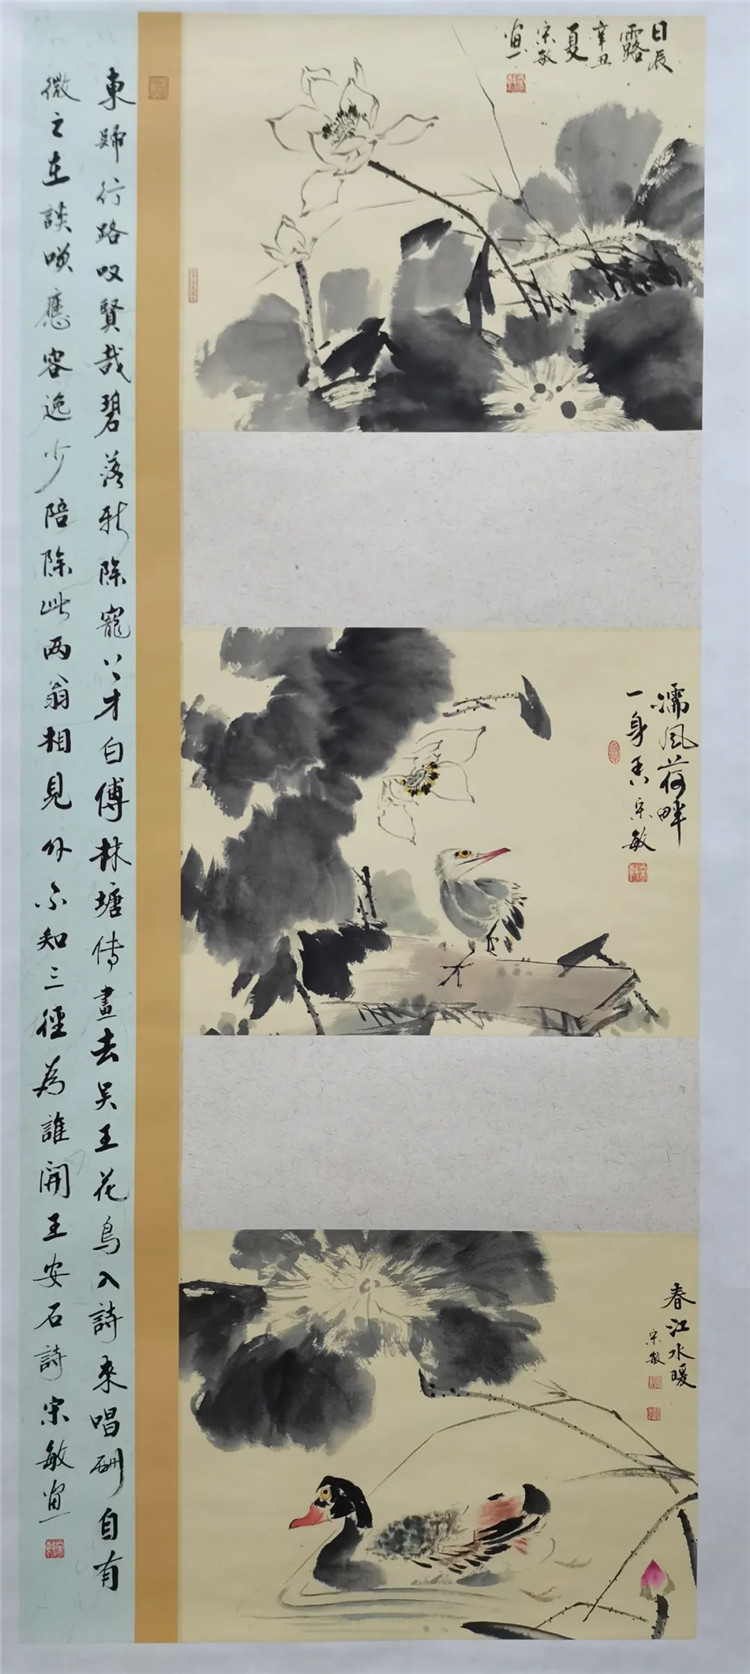 晨露
辛丑
夏
宋敏
画
東歸行路叹賢哉碧落新除寵上才白傅林塘傳畫去吴王花鳥入詩来唱酬自有
微之在談唉應容逸少陪除此两翁相見外不知三徑為誰開王安石詩宋敏画
濡風荷畔
一身香宋敏
春江水暖
宋敏